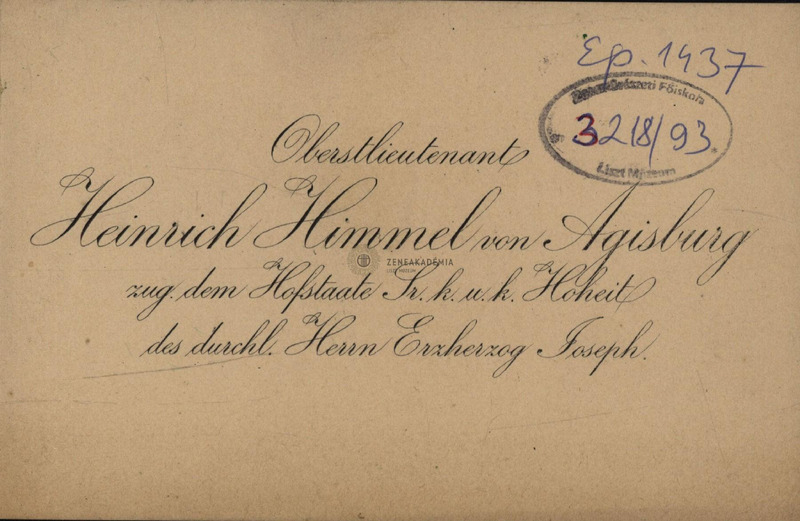 Ep. 1437
Zeneművészeti Főiskola
3218/93.
Liszt Múzeum
Oberstlieutenant
Heinrich Himmel von Agisburg
ZENEAKADÉMIA
LISZT MÚZEUM
zug. dem Hofstaate Sr. k. u. k. Hoheit
des durchl. Herrn Erzherzog Joseph.